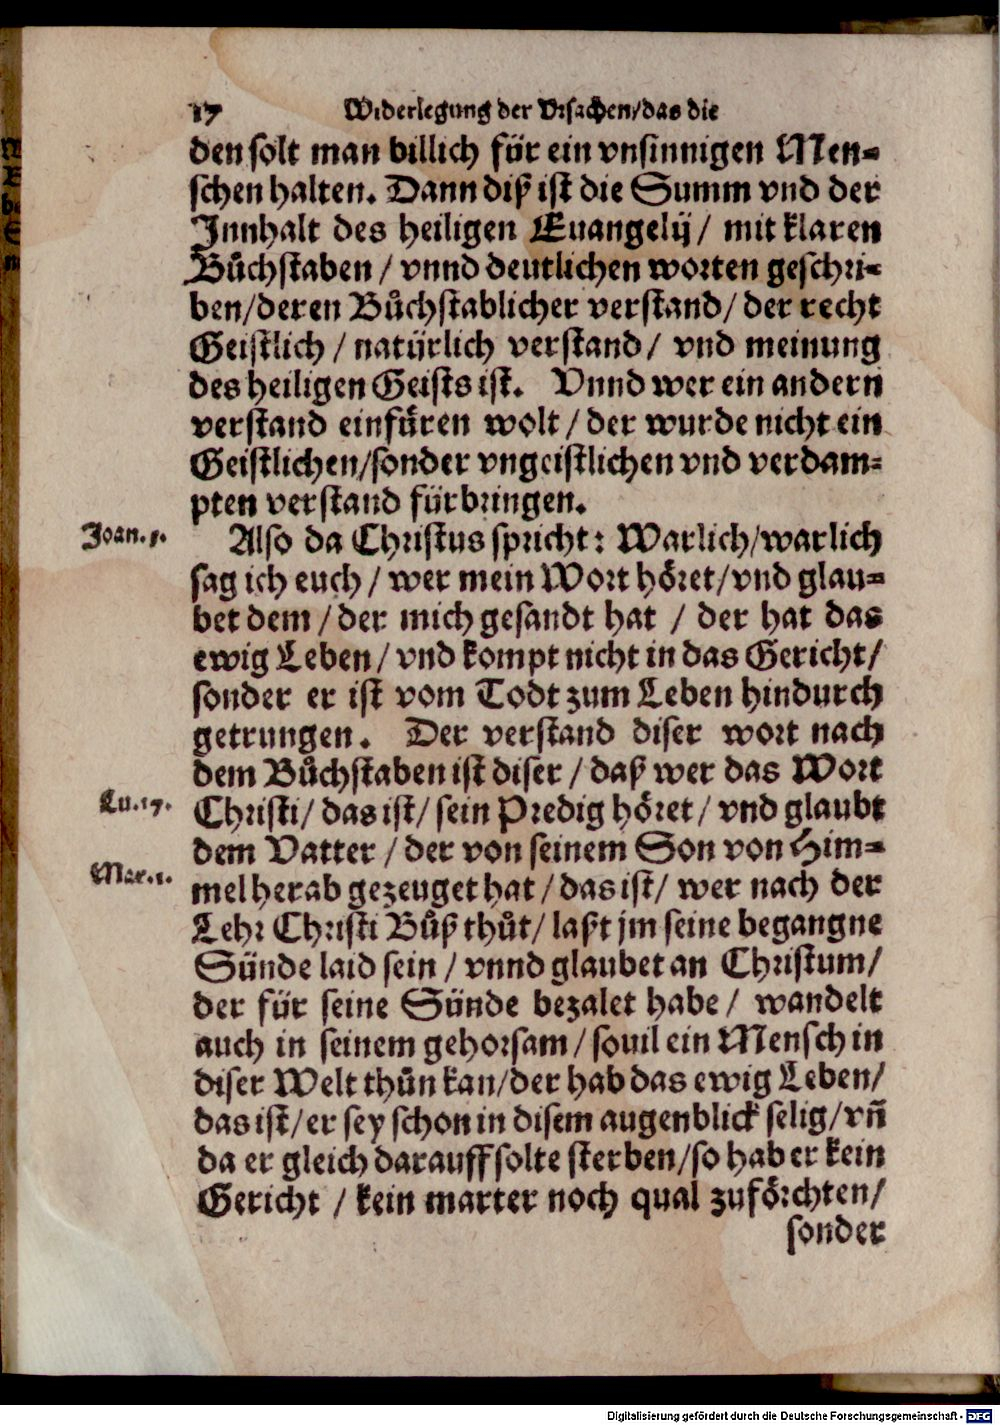 17 Widerlegung der Vrsachen/das die
den solt man billich für ein vnsinnigen Men-
schen halten. Dann diß ist die Summ vnd der
Innhalt des heiligen Euangelij/ mit klaren
Bůchstaben / vnnd deutlichen worten geschri-
ben/deren Bůchstablicher verstand/ der recht
Geistlich / natürlich verstand/ vnd meinung
des heiligen Geists ist. Vnnd wer ein andern
verstand einfüren wolt / der wurde nicht ein
Geistlichen/sonder vngeistlichen vnd verdam-
pten verstand fürbringen.
Joan. 5. Also da Christus spricht: Warlich/warlich
sag ich euch / wer mein Wort höret/vnd glau-
bet dem / der mich gesandt hat / der hat das
ewig Leben / vnd kompt nicht in das Gericht/
sonder er ist vom Todt zum Leben hindurch
getrungen. Der verstand diser wort nach
dem Bůchstaben ist diser / daß wer das Wort
Lu. 17. Christi/ das ist/ sein Predig höret/ vnd glaubt
dem Vatter / der von seinem Son von Him-
Mar. 1. mel herab gezeuget hat / das ist/ wer nach der
Lehr Christi Bůß thůt/ laßt jm seine begangne
Sünde laid sein / vnnd glaubet an Christum/
der für seine Sünde bezalet habe / wandelt
auch in seinem gehorsam / souil ein Mensch in
diser Welt thůn kan/der hab das ewig Leben/
das ist/ er sey schon in disem augenblick selig/vñ
da er gleich darauff solte sterben/so hab er kein
Gericht / kein marter noch qual zuförchten/
sonder
Digitalisierung gefördert durch die Deutsche Forschungsgemeinschaft - DFG